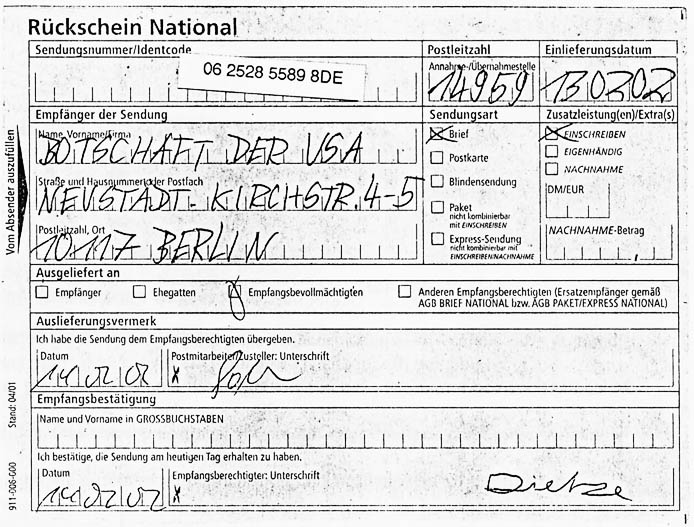 Rückschein National
Sendungsnummer/Identcode
Postleitzahl
Einlieferungsdatum
06 2528 5589 8DE
Annahme-/Übernahmestelle
14959
130202
Empfänger der Sendung
Sendungsart
Zusatzleistung(en)/Extra(s)
Name, Vorname/Firma
BOTSCHAFT DER USA
Brief
EINSCHREIBEN
Postkarte
EIGENHÄNDIG
NACHNAHME
Straße und Hausnummer oder Postfach
NEUSTÄDT. KIRCHSTR. 4-5
Blindensendung
DM/EUR
Paket
nicht kombinierbar
mit EINSCHREIBEN
Postleitzahl, Ort
10117 BERLIN
Express-Sendung
nicht kombinierbar mit
EINSCHREIBEN/NACHNAHME
NACHNAHME-Betrag
Vom Absender auszufüllen
Ausgeliefert an
Empfänger
Ehegatten
Empfangsbevollmächtigten
Anderen Empfangsberechtigten (Ersatzempfänger gemäß
AGB BRIEF NATIONAL bzw. AGB PAKET/EXPRESS NATIONAL)
Auslieferungsvermerk
Ich habe die Sendung dem Empfangsberechtigten übergeben.
Datum
Postmitarbeiter/Zusteller: Unterschrift
14 02 02
X
Empfangsbestätigung
Name und Vorname in GROSSBUCHSTABEN
Ich bestätige, die Sendung am heutigen Tag erhalten zu haben.
Datum
Empfangsberechtigter: Unterschrift
14 02 02
X
Dietze
911-006-600
Stand: 04/01